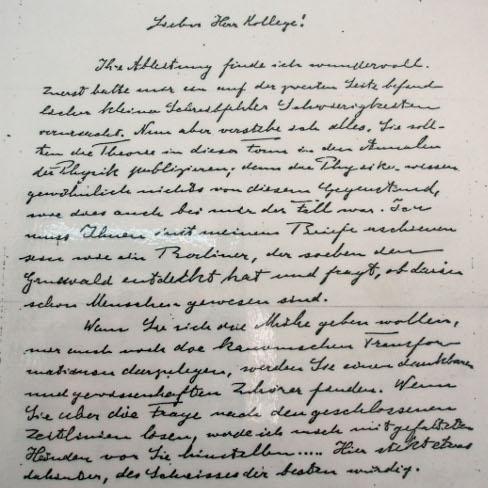 Lieber Herr Kollege!
Ihre Ableitung finde ich wundervoll.
Zuerst hatte mir ein auf der zweiten Seite befind-
licher kleiner Schreibfehler Schwierigkeiten
verursacht. Nun aber verstehe ich alles. Sie soll-
ten die Theorie in dieser Form in den Annalen
der Physik publizieren; denn die Physiker wissen
gewöhnlich nichts von diesem Gegenstand,
wie dies auch bei mir der Fall war. Ich
muss Ihnen mit meinem Briefe erschienen
sein wie ein Berliner, der soeben den
Grunewald entdeckt hat und fragt, ob darin
schon Menschen gewesen sind.
Wenn Sie sich die Mühe geben wollen,
mir auch noch die kanonischen Transfor-
mationen darzulegen, werden Sie einen dankbaren
und gewissenhaften Zuhörer finden. Wenn
Sie aber die Frage nach den geschlossenen
Zeitlinien lösen, werde ich mich mit gefalteten
Händen vor Sie hinstellen..... Hier steckt etwas
dahinter, des Schweisses der besten würdig.